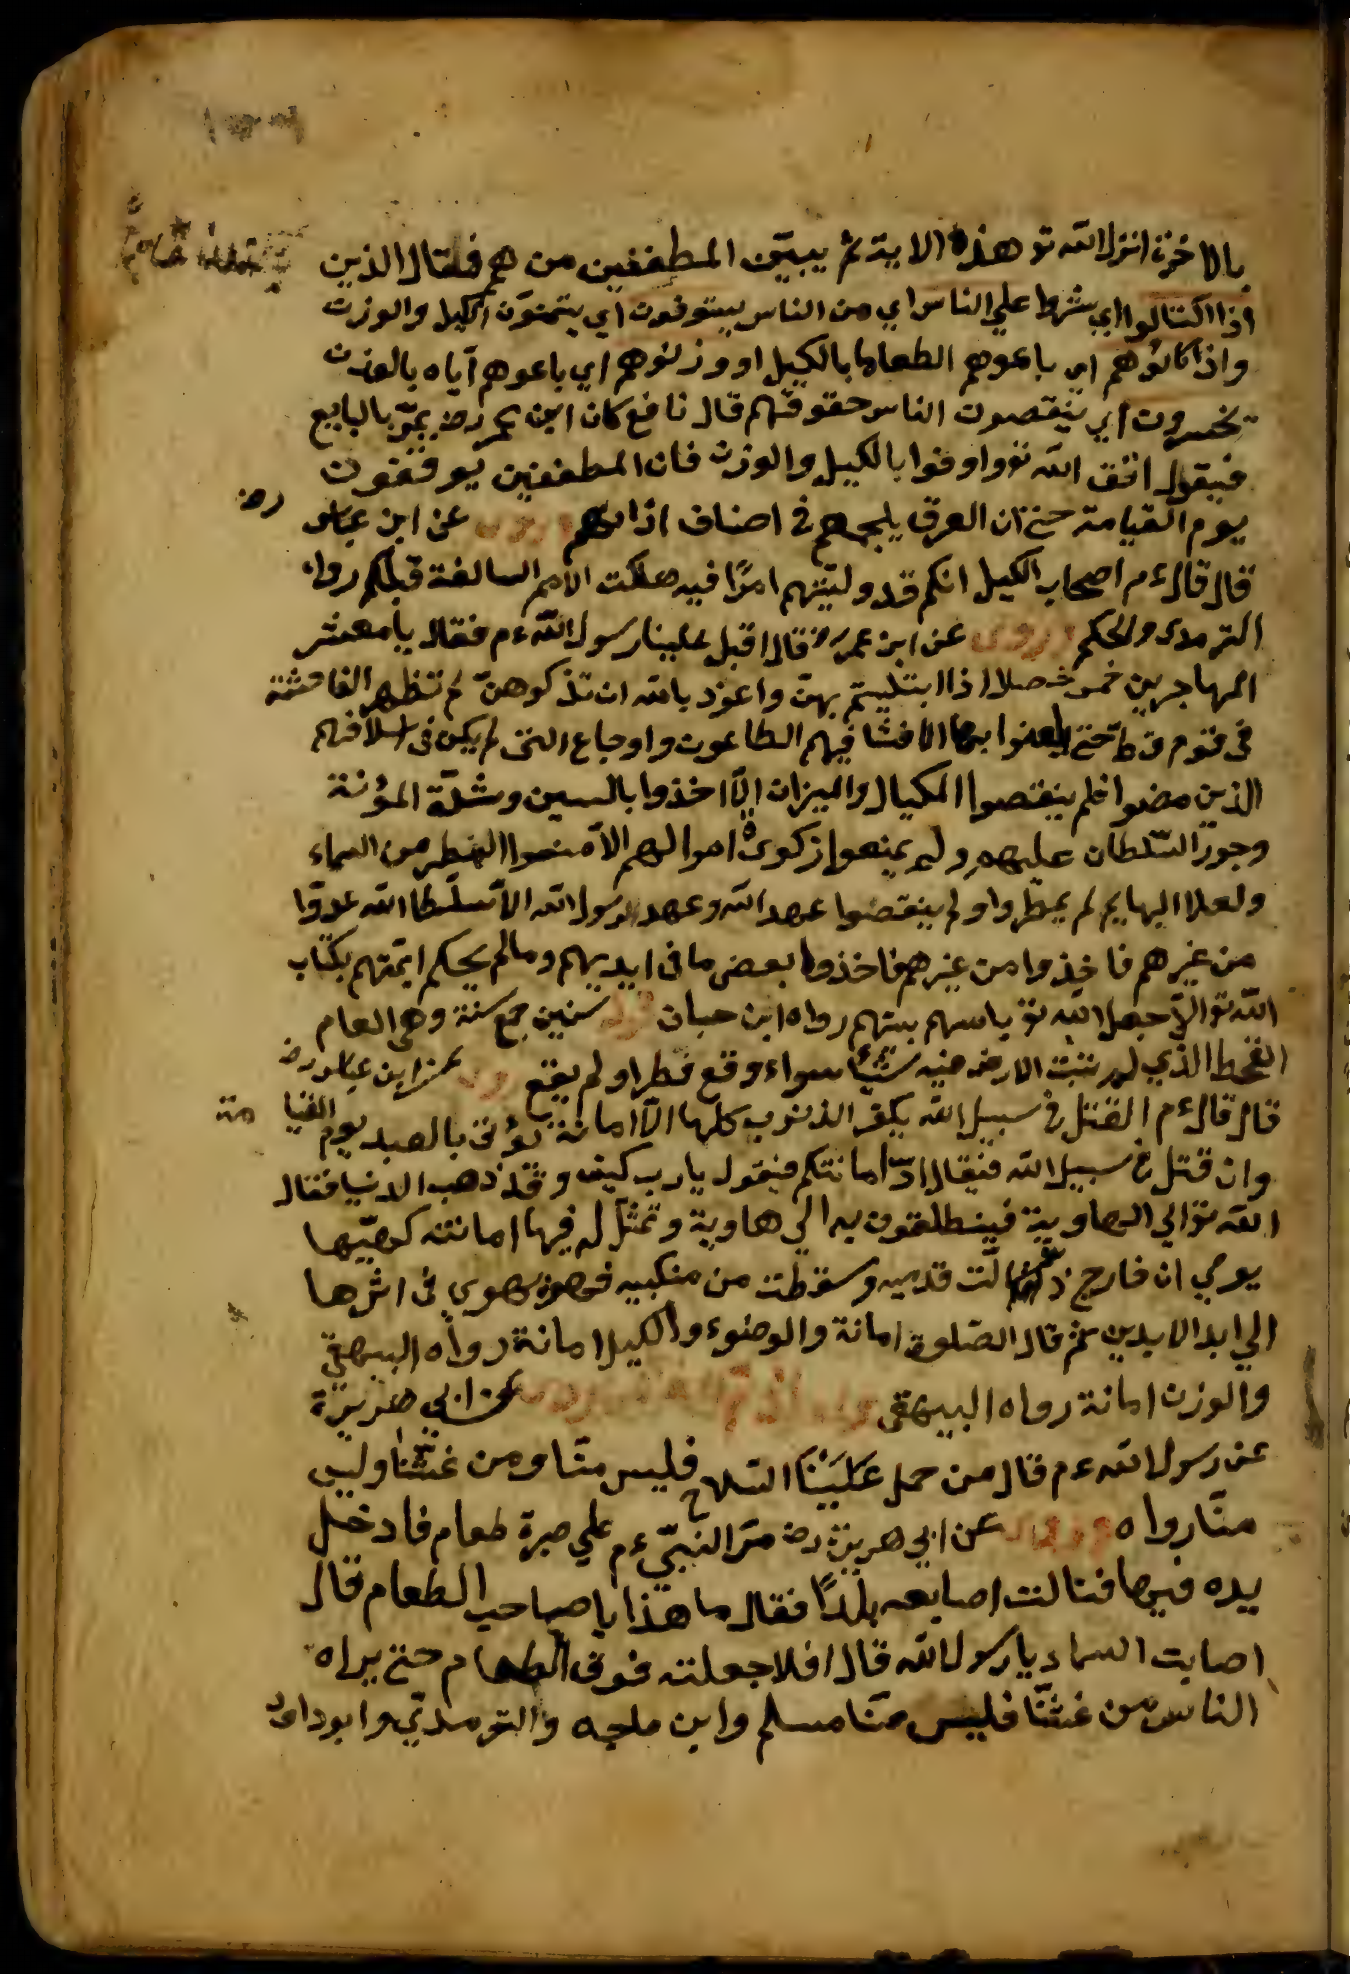 بالاخرة انزل الله تو هذه الاية ثم يبين المطففين من هم فقال الذين
اذا اكتالوا اي شرطا على الناس اي من الناس يستوفون اي يتمون الكيل والوزن
واذا كالوهم اي باعوهم الطعاما بالكيل او وزنوهم اي باعوهم اياه بالوزن
يخسرون اي ينقصون الناس حقوقهم قال نافع كان ابن عمر رض يمر بالبايع
فيقول اتق الله تو واوفوا بالكيل والوزن فان المطففين يوقفون
يوم القيامة حتى ان العرق يلجمهم في اصناف اذانهم وروى عن ابن عباس رض
قال قال ءم اصحاب الكيل انكم قد وليتهم امرا فيه هلكت الامم السالفة قبلكم رواه
الترمدى والحكم وروى عن ابن عمر رض قال اقبل علينا رسول الله ءم فقال يا معشر
المهاجرين خمس خصلا اذا ابتليتم بهن واعوذ بالله ان تذكوهن لم تظهر الفاحشة
فى قوم قط حتى يلعنوا بها الا فشا فيهم الطاعون واوجاع التى لم يكن فى اسلافهم
الذين مضوا فلم ينقصوا المكيال والميزان الا اخذوا بالسين وشدة المؤنة
وجور السلطان عليهم ولم يمنعوا زكوة اموالهم الا منعوا القطر من السماء
ولعلا البهايم لم يمطروا ولم ينقضوا عهد الله وعهد رسول الله الا سلطا الله عدوا
من غيرهم فاخذوا من غيرهم فاخذوا بعض ما فى ايديهم وما لم يحكم ائمتهم بكتاب
الله تو الا جعل الله تو باسهم بينهم رواه ابن حبان قوله سنين جمع سنة وهى العام
القحط الذي لم تنبت الارض فيه شيئا سواء وقع قطر او لم يقع روى عن ابن عباس رض
قال قال ءم القتل فى سبيل الله يكفر الذنوب كلها الا امانة يؤتى بالعبد يوم القيا مة
وان قتل فى سبيل الله فيقال اد امانتكم فيقول يا رب كيف وقد ذهب الدنيا فقال
الله تو الي الهاوية فينطلقون به الي هاوية وتمثل له فيها امانته كهيها
يومي ان خارج زالت قدميه وسقطت من منكبيه فهو يهوي فى اثرها
الي ابد الابدين ثم قال الصلوة امانة والوضوء والكيل امانة رواه البيهقي
والوزن امانة رواه البيهقى عن ابي هريرة
عن رسول الله ءم قال من حمل علينا السلاح فليس منا ومن غشنا وليس
منا رواه وروى عن ابي هريرة رض مر النبي ءم علي صبرة طعام فادخل
يده فيها فنالت اصابعه بللا فقال ما هذا يا صاحب الطعام قال
اصابت السماء يا رسول الله قال افلا جعلته فوق الطعام حتى يراه
الناس من غشنا فليس منا مسلم وابن ماجه والترمدي وابو داود